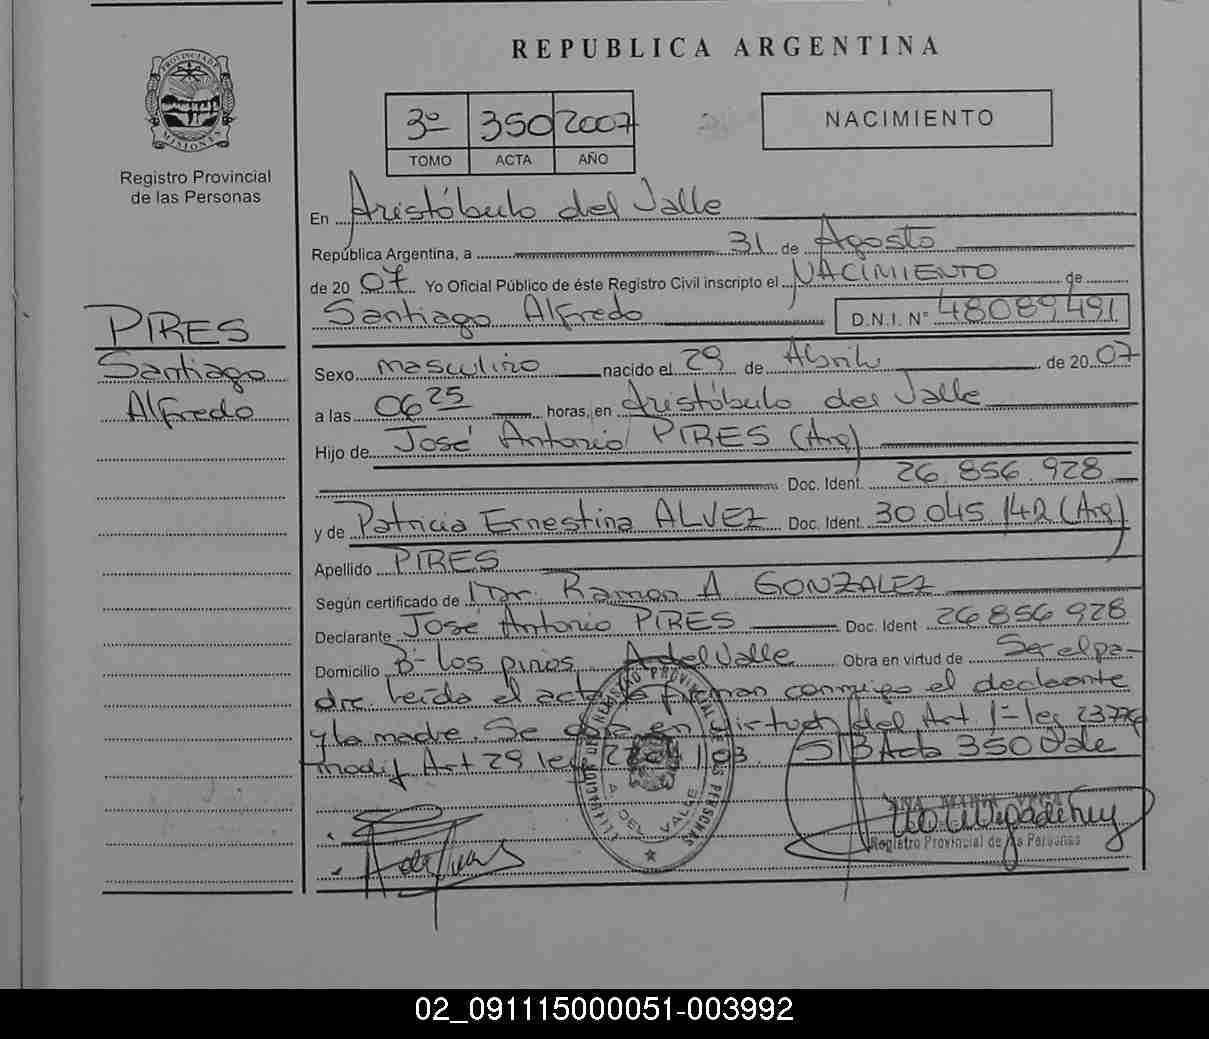 REPUBLICA ARGENTINA
PROVINCIA DE
MISIONES
Registro Provincial
de las Personas
3º 350 2007
TOMO ACTA AÑO
NACIMIENTO
En Aristóbulo del Valle
República Argentina, a 31 de Agosto
de 20 07 Yo Oficial Público de éste Registro Civil inscripto el NACIMIENTO de
Santiago Alfredo D.N.I. N° 48089491
PIRES
Santiago
Alfredo
Sexo masculino nacido el 29 de Abril de 20 07
a las 06 25 horas, en Aristóbulo del Valle
Hijo de José Antonio PIRES (Arg)
Doc. Ident. 26.856.928
y de Patricia Ernestina ALVEZ Doc. Ident. 30.045.142 (Arg)
Apellido PIRES
Según certificado de Dr. Ramon A GONZALEZ
Declarante José Antonio PIRES Doc. Ident 26 856 928
Domicilio Bº Los pinos A del Valle Obra en virtud de Ser el pa-
dre. leída el acta la firman conmigo el declarante
y la madre. Se en virtud del Art 1º ley 23776
modif Art 29 ley S/B Acta 350 Vale
REGISTRO PROVINCIAL DE LAS PERSONAS
A. DEL VALLE
Registro Provincial de las Personas
02_091115000051-003992